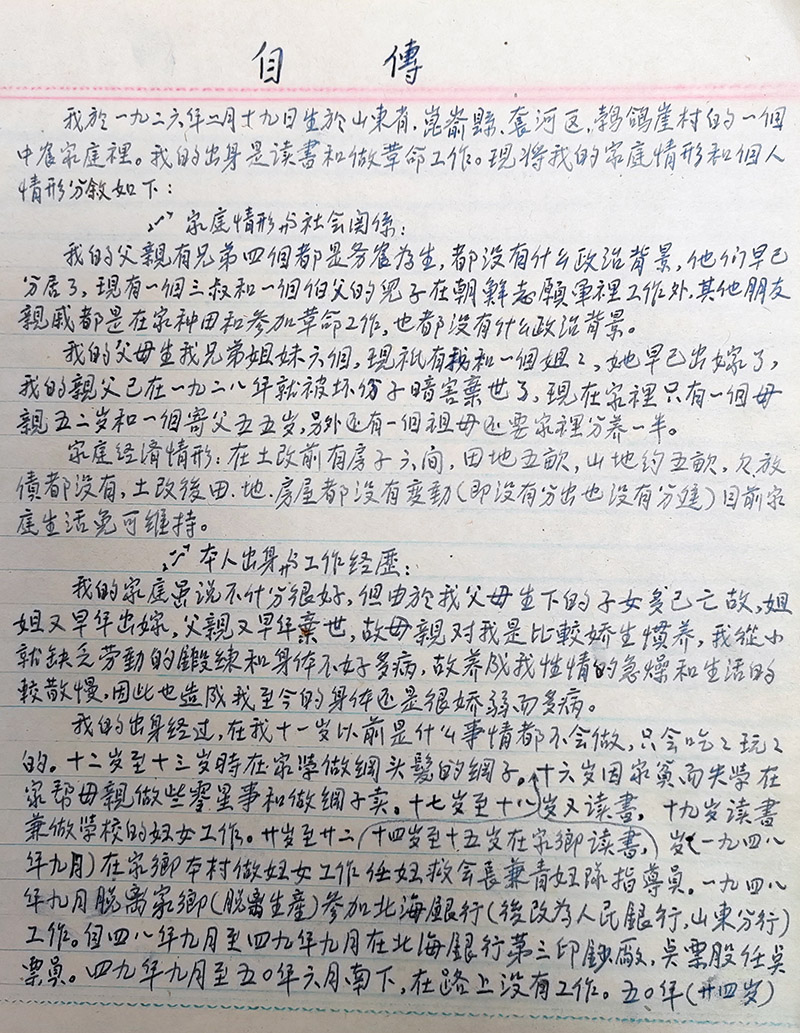 自傳
我於一九二六年二月十九日生於山東省，崑崳縣，套河区，鹁鴿崖村的一個
中农家庭裡。我的出身是读書和做革命工作。現将我的家庭情形和個人
情形分敘如下：
家庭情形与社会関係：
我的父親有兄弟四個都是务农為生，都没有什么政治背景，他们早已
分居了，現有一個三叔和一個伯父的兒子在朝鮮志願軍裡工作外，其他朋友
親戚都是在家种田和參加革命工作，也都没有什么政治背景。
我的父母生我兄弟姐妹六個，現祇有我和一個姐〻，她早已出嫁了，
我的親父已在一九二八年就被坏份子暗害棄世了，現在家裡只有一個母
親五二岁和一個寄父五五岁，另外还有一個祖母还要家裡分养一半。
家庭经濟情形：在土改前有房子六间，田地五畝，山地约五畝，欠放
債都没有，土改後田．地．房屋都没有变動（即没有分出也没有分進）目前家
庭生活免可維持。
本人出身与工作经歷：
我的家庭虽说不什分很好，但由於我父母生下的子女多已亡故，姐
姐又早年出嫁，父親又早年棄世，故母親对我是比較娇生慣养，我從小
就缺乏劳動的鍛練和身体不好多病，故养成我性情的急燥和生活的
較散慢，因此也造成我至今的身体还是很娇弱而多病。
我的出身经过，在我十一岁以前是什么事情都不会做，只会吃〻玩〻
的。十二岁至十三岁時在家学做網头髮的網子。十六岁因家貧而失学在
家帮母親做些零星事和做網子卖。十七岁至十八岁又读書，十九岁读書
兼做学校的妇女工作。廿岁至廿二（十四岁至十五岁在家鄉读書，）岁（一九四八
年九月）在家鄉本村做妇女工作任妇救会長兼青妇隊指導員。一九四八
年九月脱离家鄉（脱离生産）參加北海銀行（後改為人民銀行，山東分行）
工作。自四八年九月至四九年九月在北海銀行第三印鈔廠，点票股任点
票員。四九年九月至五〇年六月南下，在路上没有工作。五〇年（廿四岁）